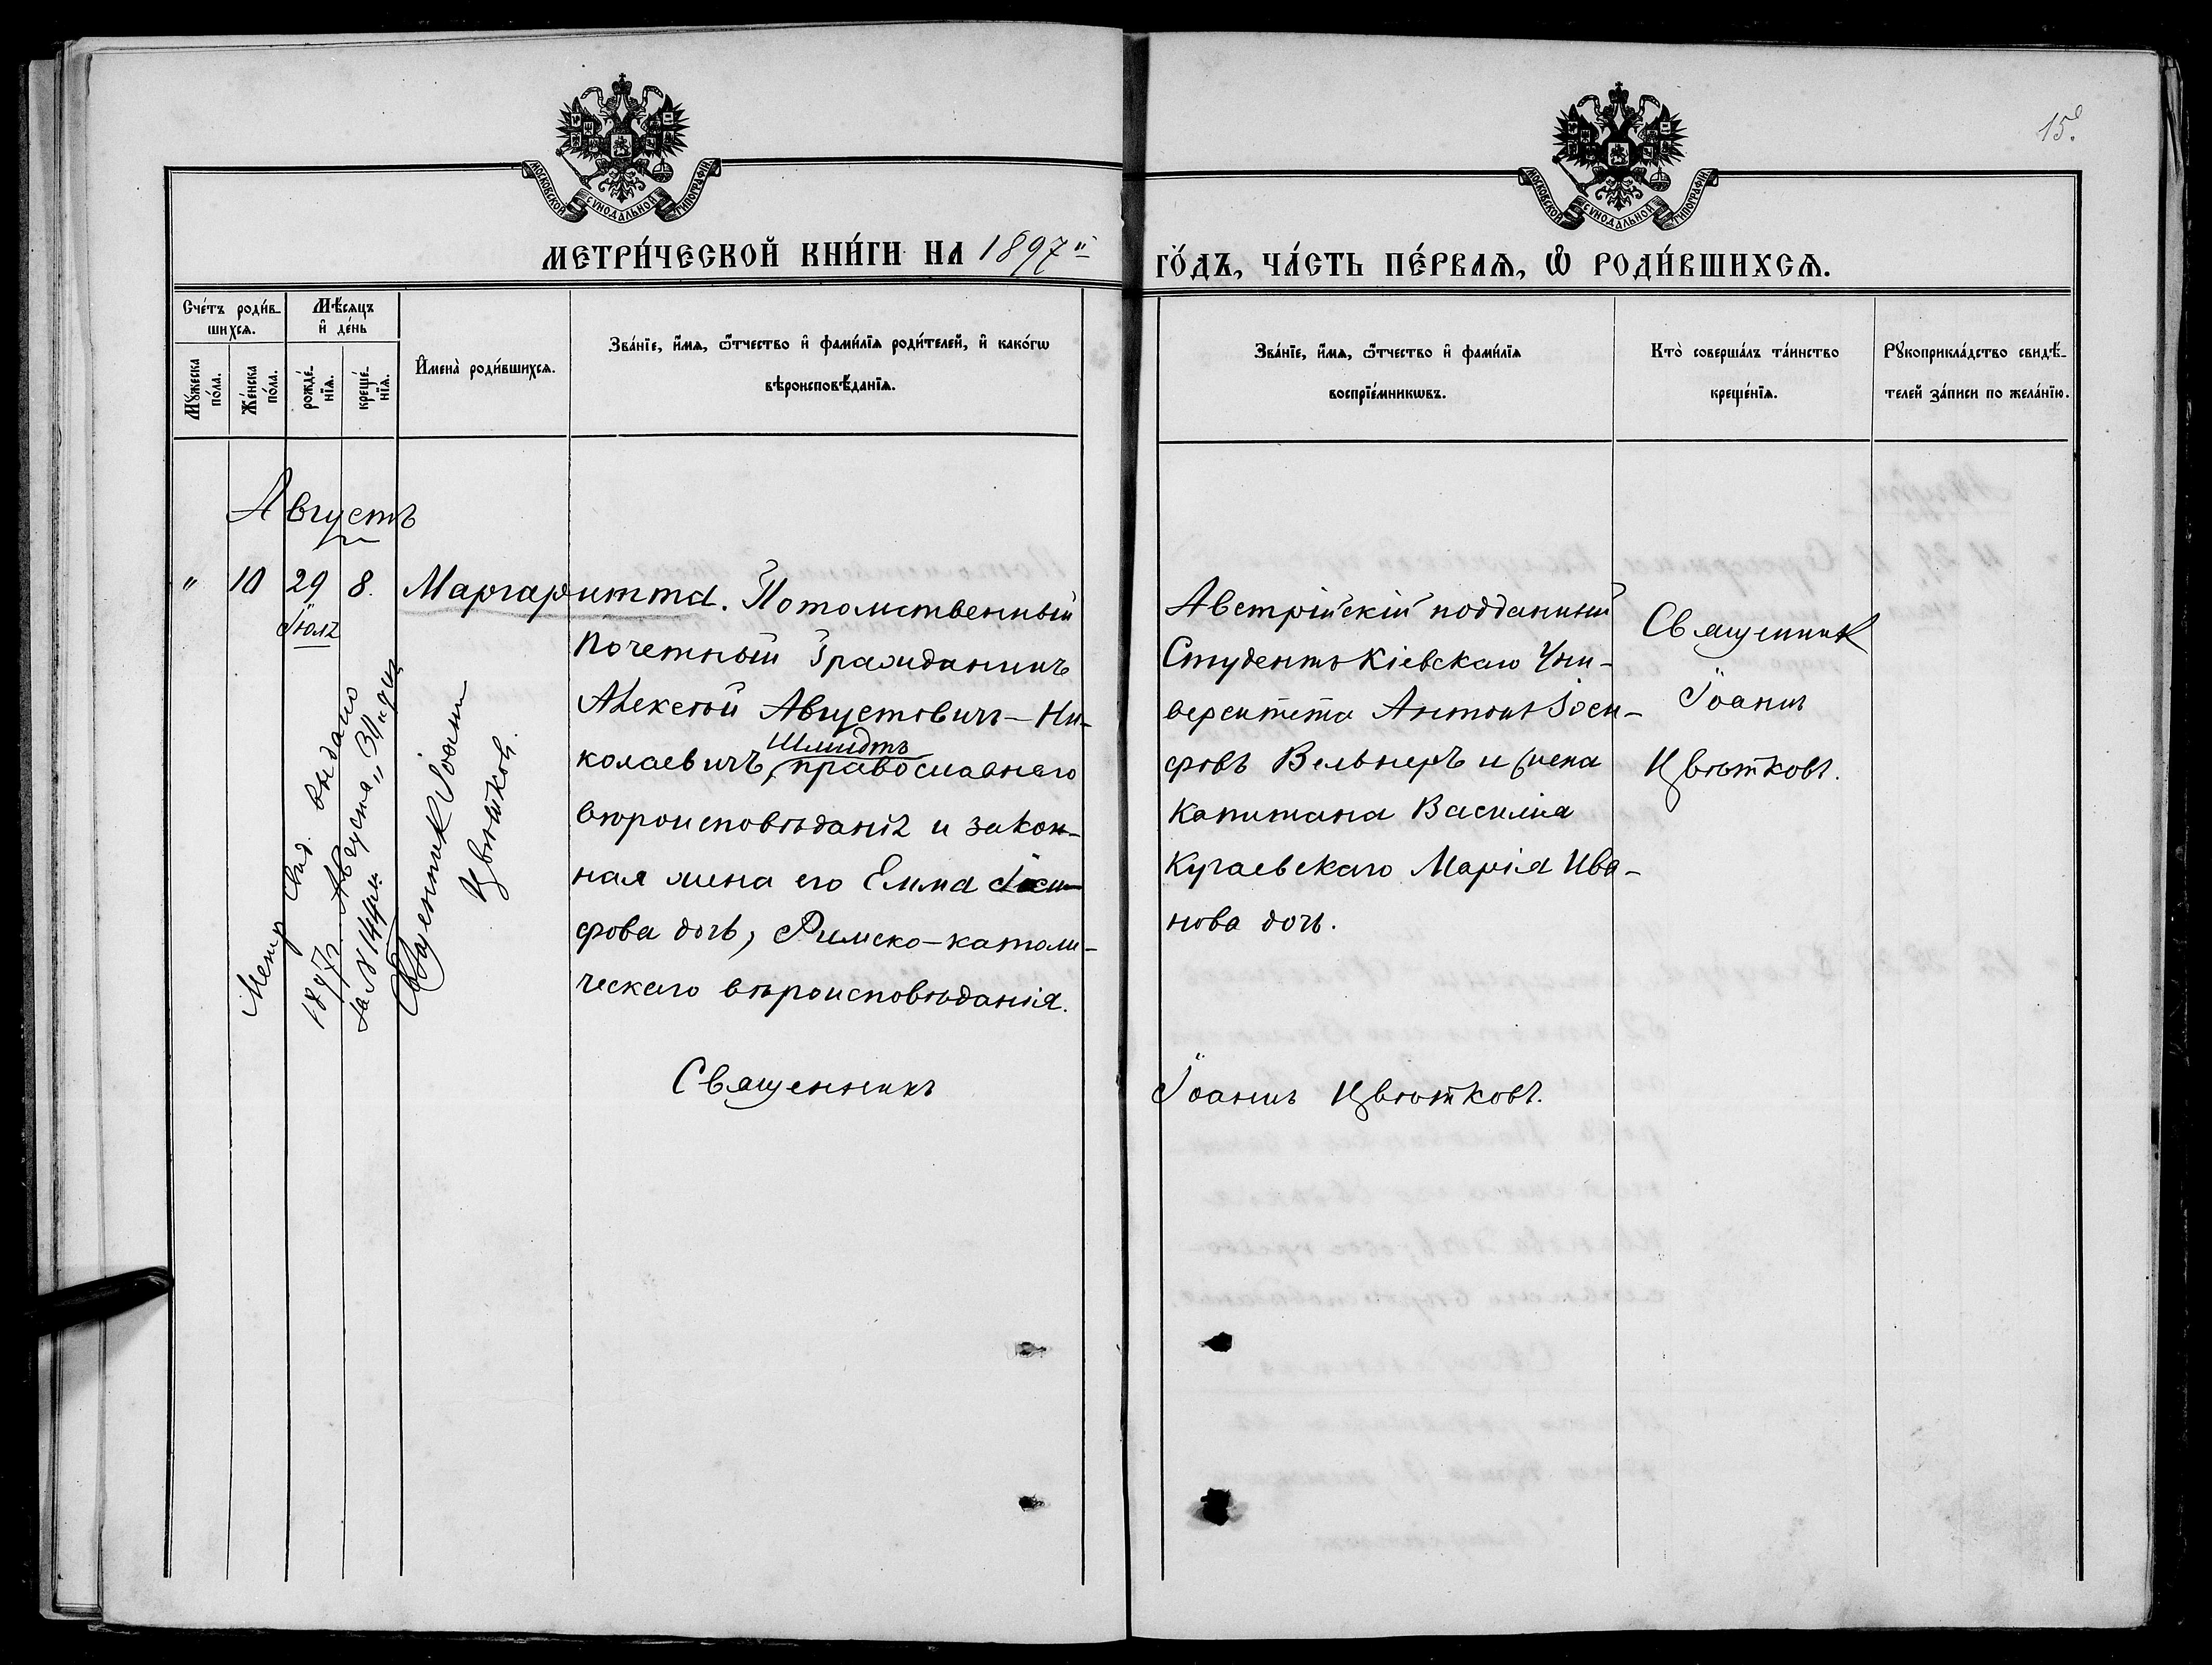 15.
МОСКОВСКОЙ СѴНОДАЛЬНОЙ ТИПОГРАФІИ
МОСКОВСКОЙ СѴНОДАЛЬНОЙ ТИПОГРАФІИ
МЕТРИ́ЧЕСКОЙ КНИ́ГИ НА 1897й
ГО́ДЪ, ЧА́СТЬ ПЕ́РВАѦ, Ѡ҆ РОДИ́ВШИХСѦ.
Сче́тъ роди́в-
шихсѧ.
Мѣ́сѧцъ
и҆ де́нь
Мꙋ́жеска
по́ла.
Же́нска
по́ла.
рожде́-
нїѧ.
креще́-
нїѧ.
И҆мена̀ роди́вшихсѧ.
Зва́нїе, и҆́мѧ, ѻ҆́тчество и҆ фами́лїѧ роди́телей, и҆ како́гѡ
вѣроисповѣ́данїѧ.
Зва́нїе, и҆́мѧ, ѻ҆́тчество и҆ фами́лїѧ
воспрїе́мникѡвъ.
Кто̀ соверша́лъ та́инство
креще́нїѧ.
Рꙋкоприкла́дство свидѣ́-
телей за́писи по жела́нїю.
Августъ
" 10 29 8. Маргаритта.
Іюля
Потомственный
Почетный Гражданинъ
Алексѣй Августовичъ-Ни-
колаевичъ Шмидтъ, православнаго
вѣроисповѣданія и закон-
ная жена его Емма Іоси-
фова дочь, Римско-католи-
ческаго вѣроисповѣданія.
Австрійскій подданный
Студентъ Кіевскаго Уни-
верситета Антонъ Іоси-
фовъ Вельнеръ и жена
Капитана Василія
Кучаевскаго Марія Ива-
нова дочь.
Священник
Іоаннъ
Цвѣтковъ.
Метр. Свид. выдано
1897 г. Августа "31" дня
за №
Священник Іоанн
Цвѣтков.
Священникъ Іоаннъ Цвѣтковъ.